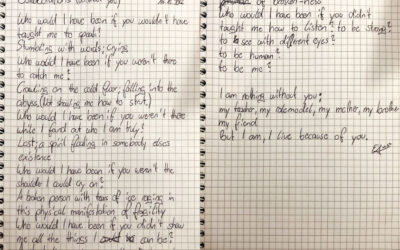 Who would I have been if you wouldn't have
taught me to speak?
Stumbling with words; crying
Who would I have been if you weren't there
to catch me?
Crawling on the cold floor; falling into the
abyss. (Not showing me how to start.)
Who would I have been if you weren't there
while I found out who I am truly?
Lost; a spirit fading in somebody elses
existence
Who would I have been if you weren't the
shoulder I could cry on?
A broken person with tears of ice in
this physical manifestation of fragility
Who would I have been if you didn't show
me all the things I can be?
of
Who would I have been if you didn't
taught me how to listen? to be strong?
to see with different eyes?
to be human?
to be me?
I am nothing without you;
my teacher, my rolemodel, my mother, my brother
my friend
But I am, I live because of you.